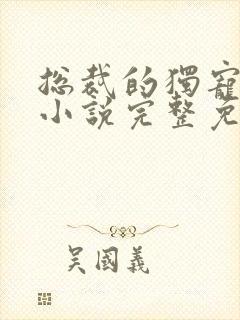 总裁的獨寵
小說完整免
吴國義